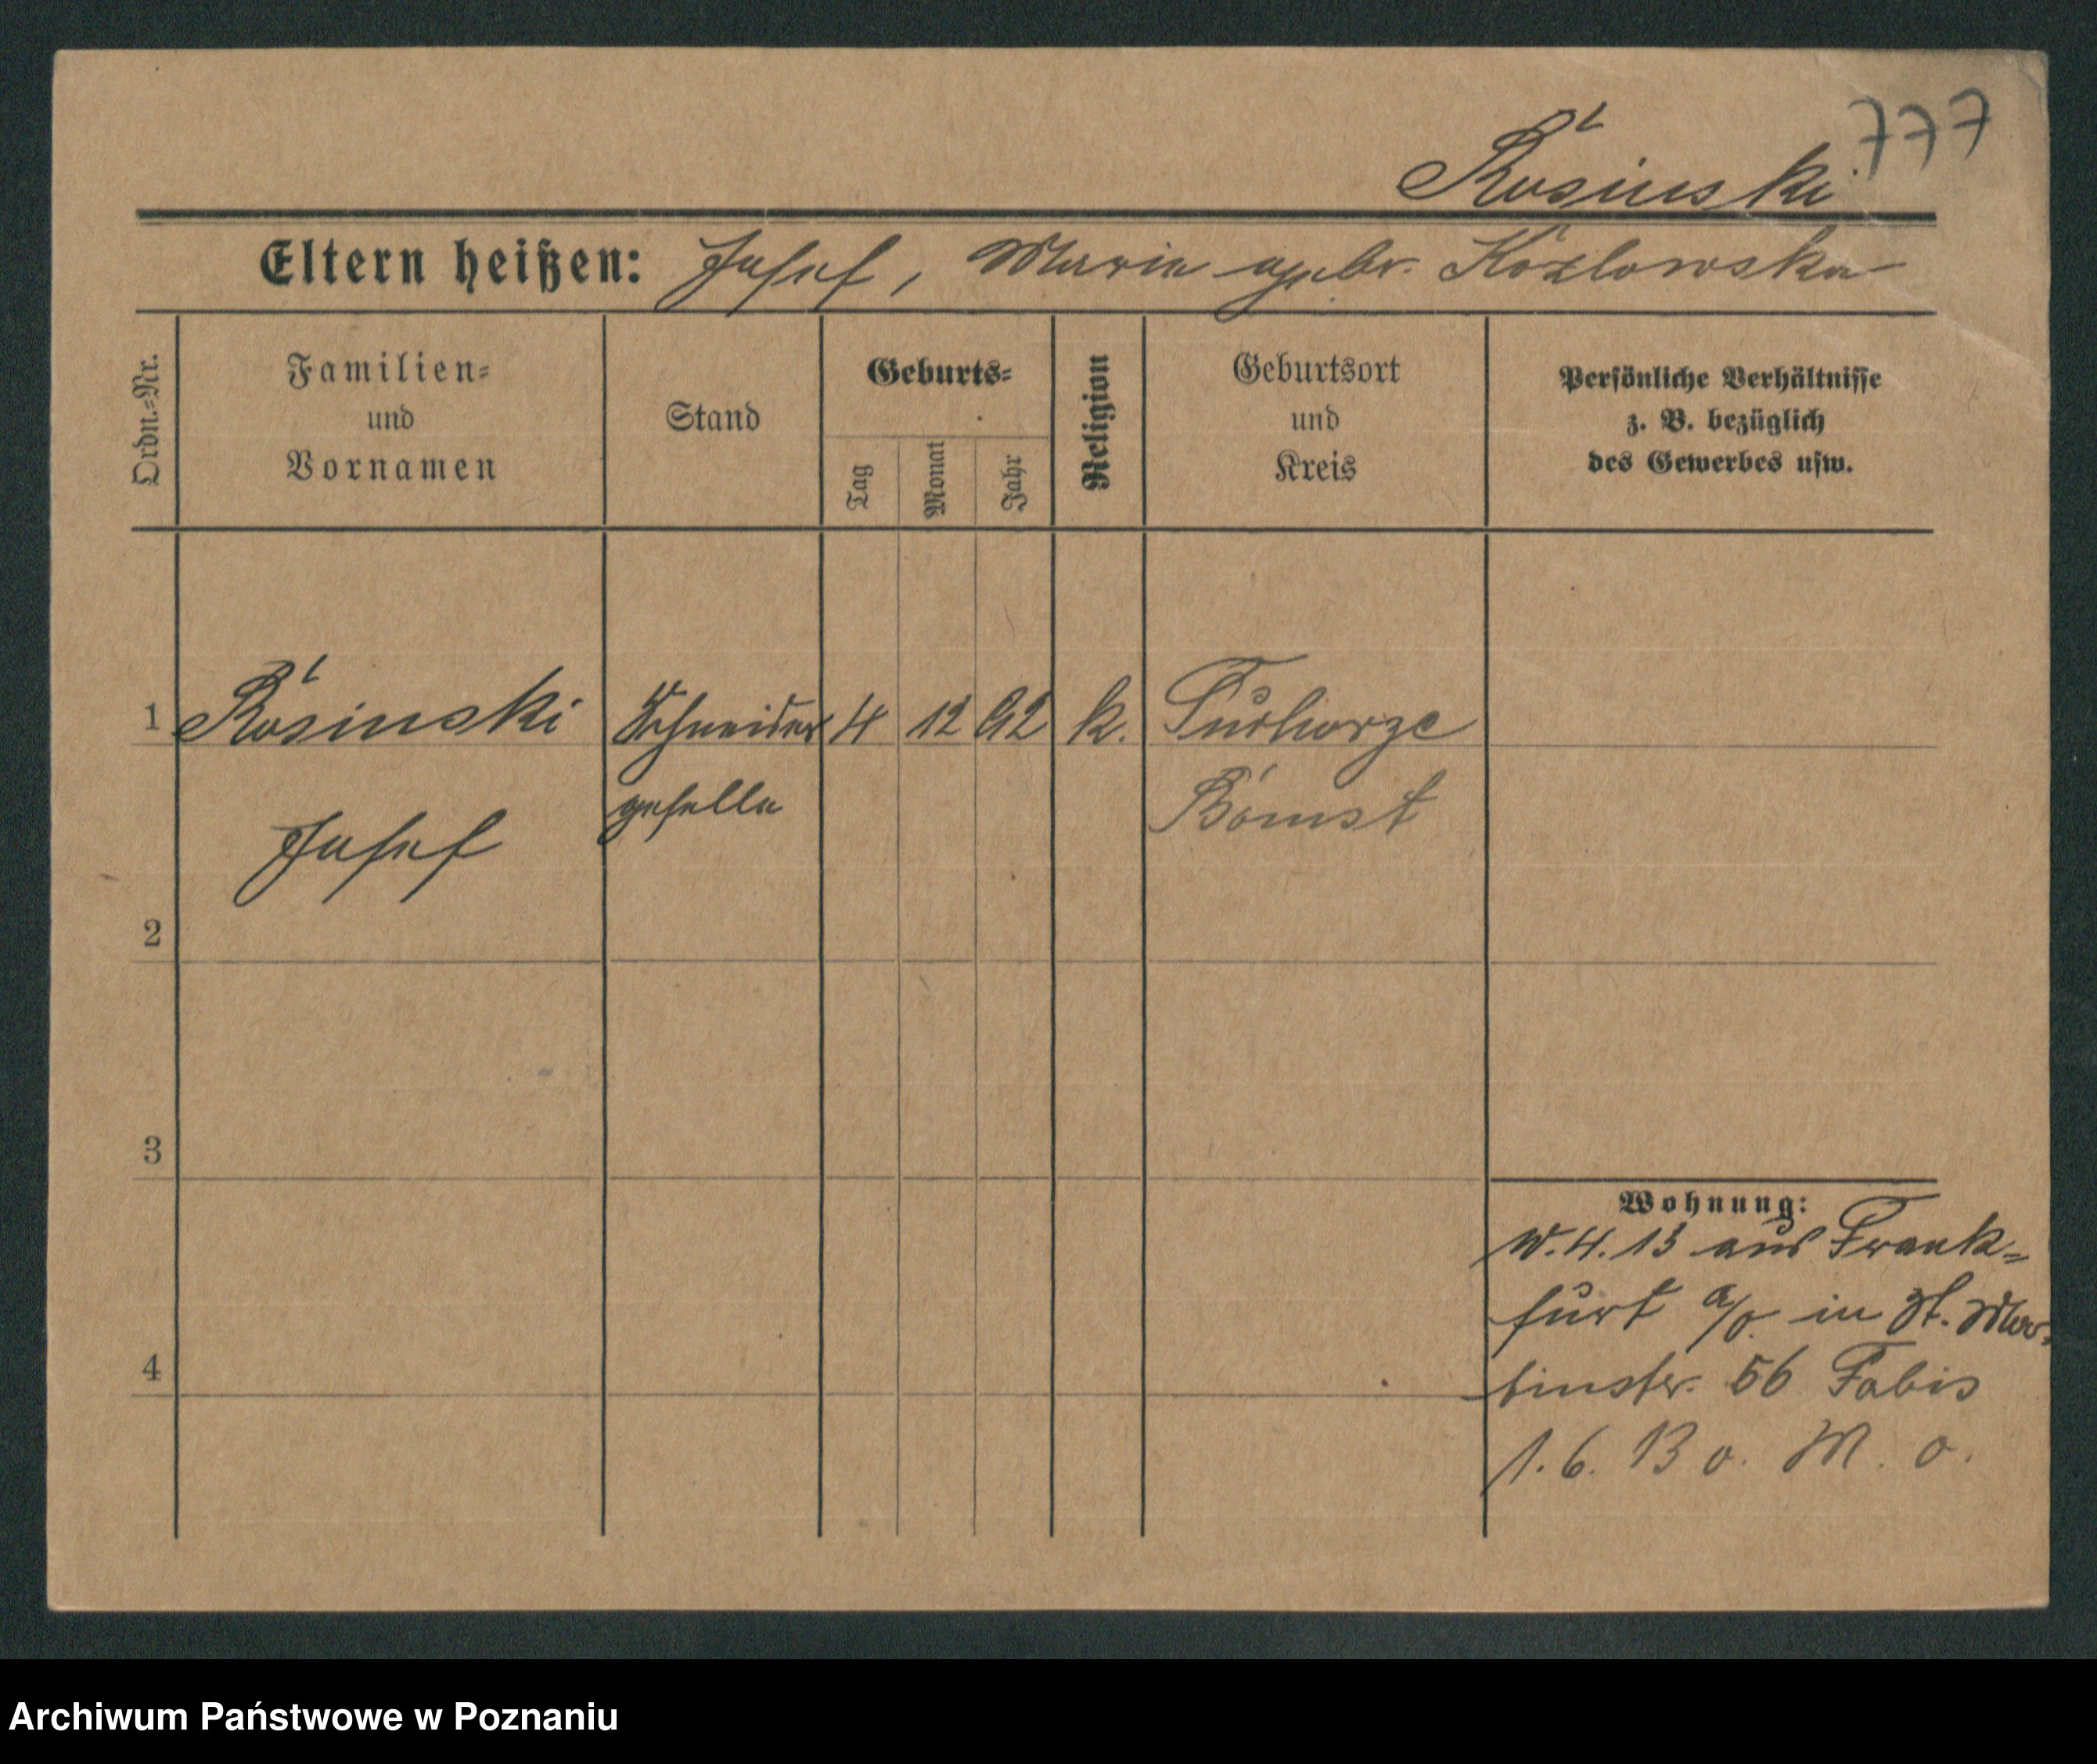 777
Rosinski
Eltern heißen: Josef, Maria gebr. Kozlowska
Ordn.-Nr.
Familien-
und
Vornamen
Stand
Geburts-
Tag
Monat
Jahr
Religion
Geburtsort
und
Kreis
Persönliche Verhältnisse
z. B. bezüglich
des Gewerbes usw.
1 Rosinski Schneider 4 12 92 k.
geselle Bomst
Josef
2
3
4
Wohnung:
4. 13 aus Frank-
furt a/O in St. Mar-
tinstr. 56 Fabis
1. 6. 13 o. M. o.
Archiwum Państwowe w Poznaniu